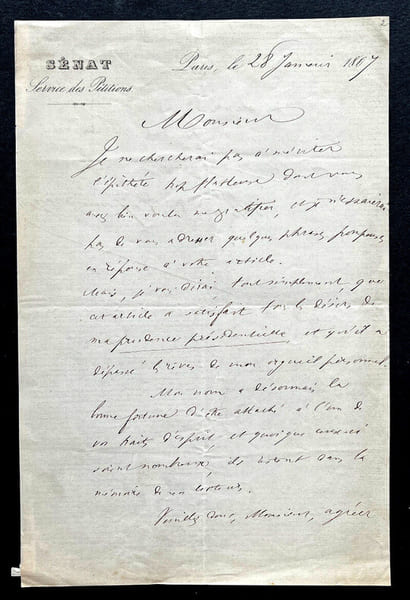 2
SÉNAT
Service des Pétitions
Paris, le 28 Janvier 1867
Monsieur
Je ne chercherai pas à mériter
l'épithète trop flatteuse dont vous
avez bien voulu me gratifier, et je n'essaierai
pas de vous adresser quelques phrases pompeuses
en réponse à votre article.
Mais, je vous dirai tout simplement, que
cet article a satisfait tous les désirs de
ma prudence présidentielle, et qu'il a
dépassé les rêves de mon orgueil personnel.
Mon nom a désormais la
bonne fortune d'être attaché à l'un de
vos traits d'esprit, et quoique ceux-ci
soient nombreux, ils restent dans la
mémoire de vos lecteurs.
Veuillez donc, Monsieur, agréer